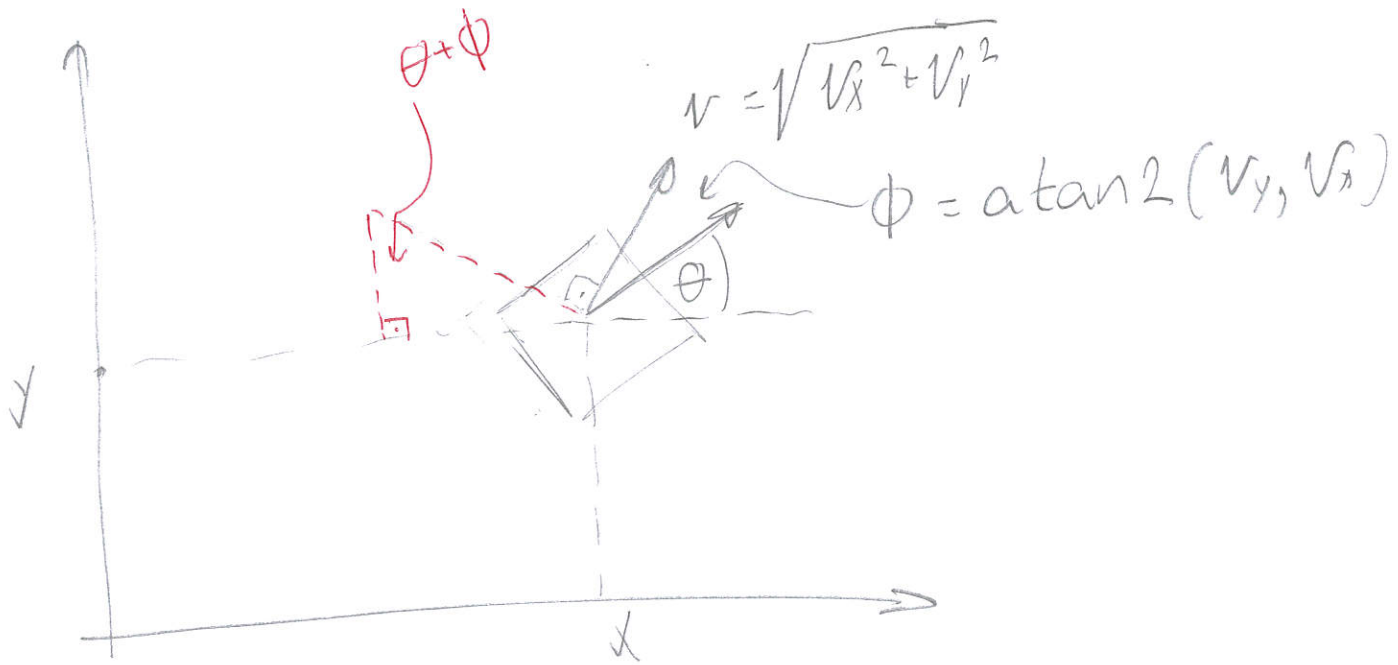 θ+ϕ
v = √(vx² + vy²)
ϕ = atan2(vy, vx)
θ
y
x